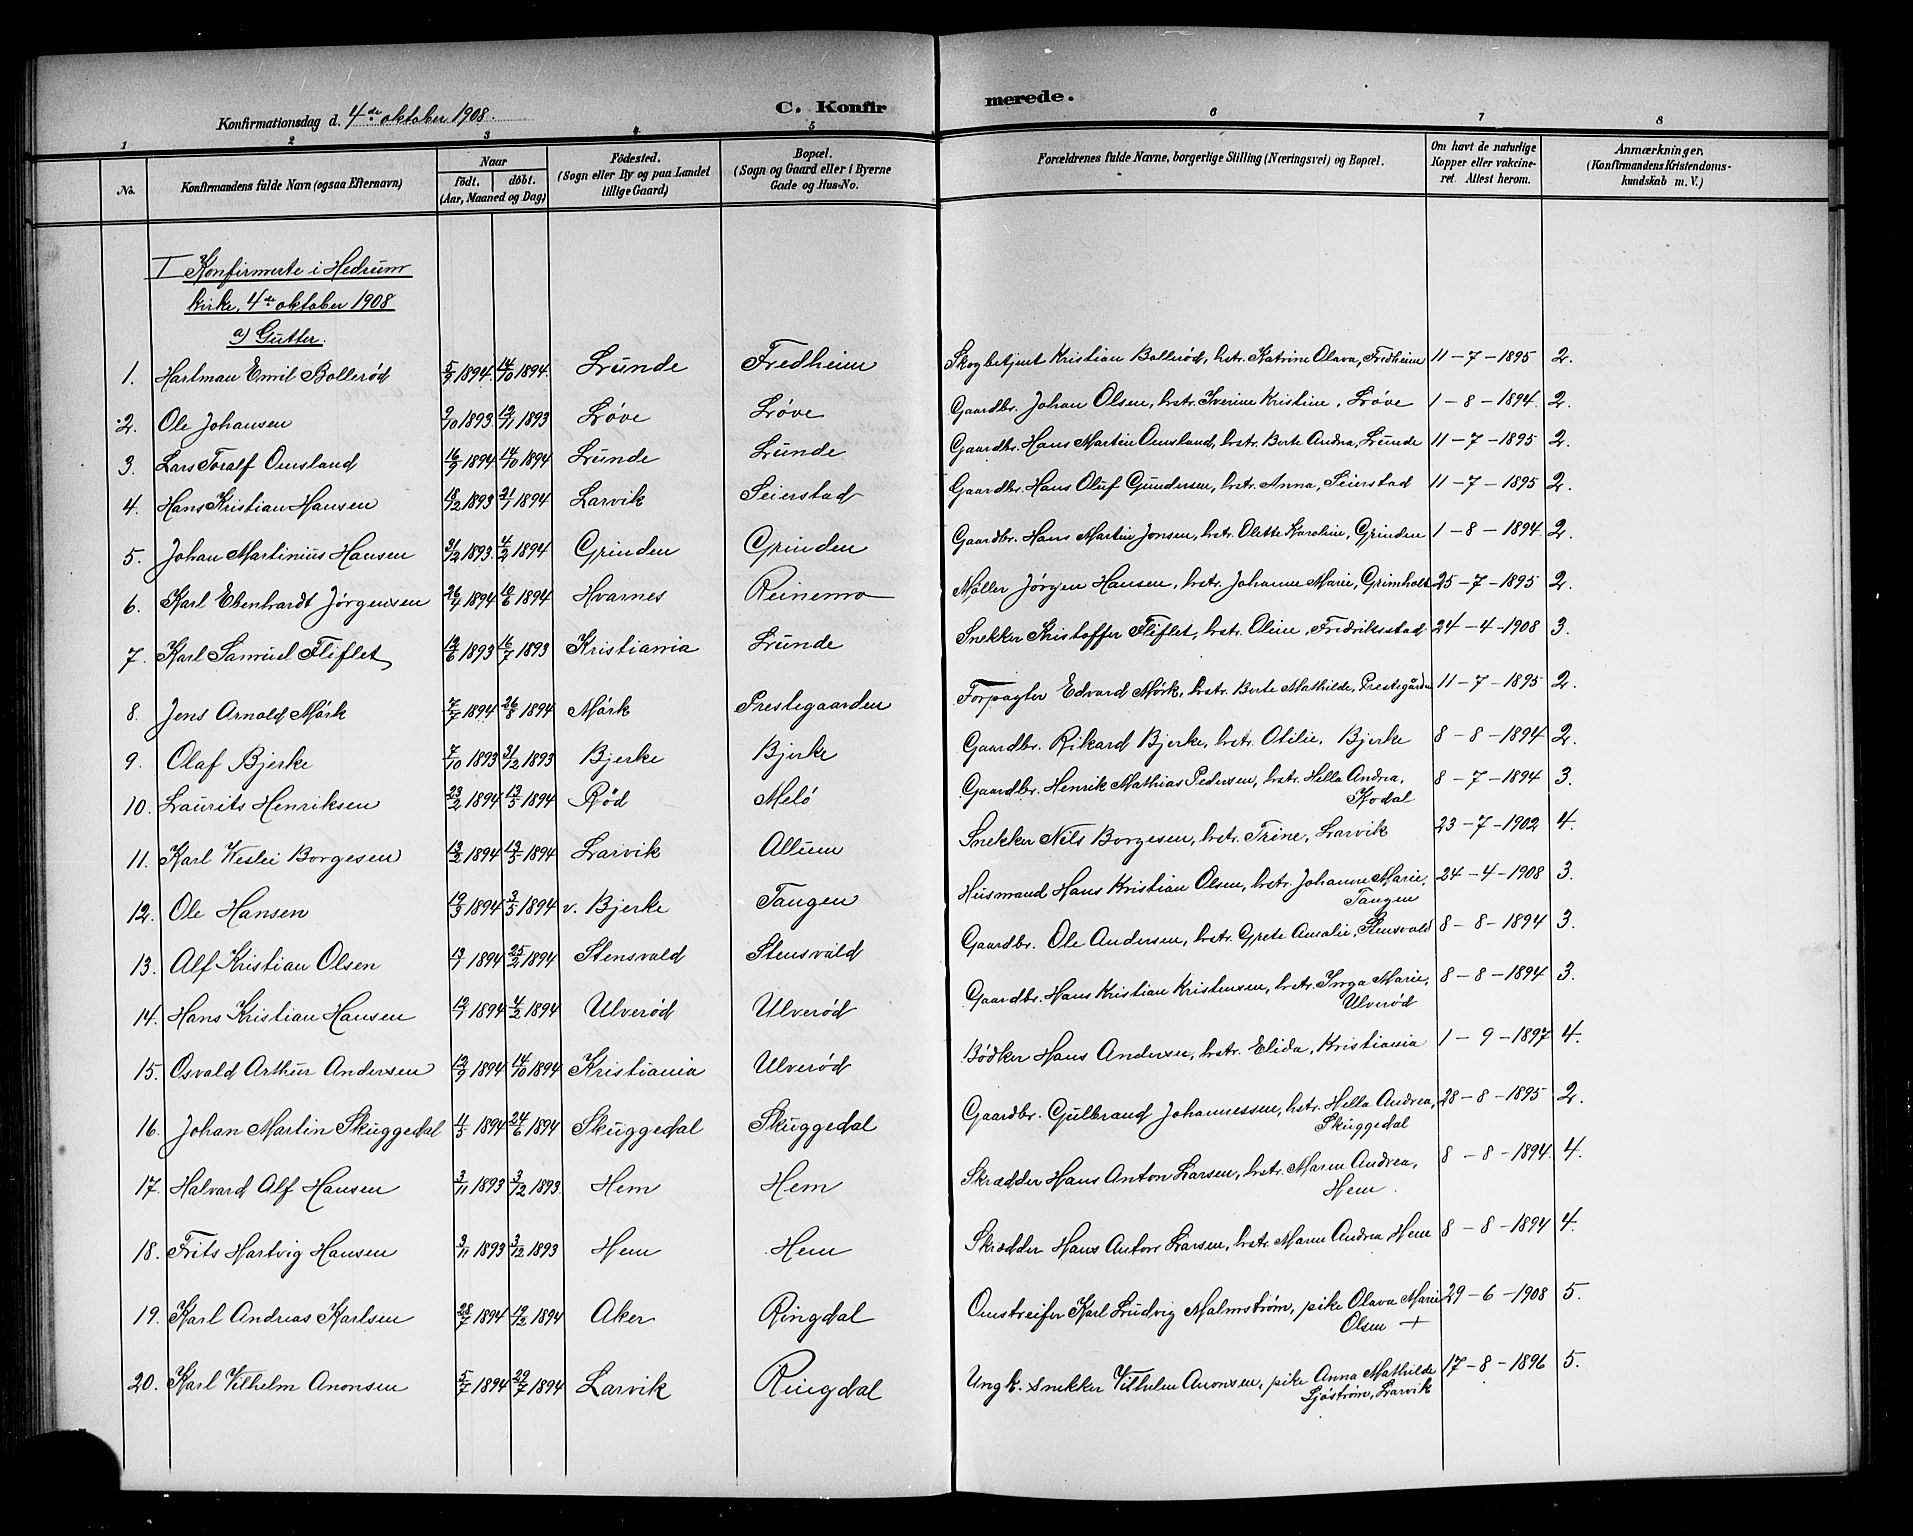 Konfirmationsdag d. 4de oktober 1908.
C. Konfir merede.
1 2 3 4 5 6 7 8
No. Konfirmandens fulde Navn (ogsaa Efternavn) Naar födt. döbt. (Aar, Maaned og Dag) Födested. (Sogn eller By og paa Landet tillige Gaard) Bopæl. (Sogn og Gaard eller i Byerne Gade og Hus-No. Forældrenes fulde Navne, borgerlige Stilling (Næringsvei) og Bopæl. Om havt de naturlige Kopper eller vakcineret. Attest herom. Anmærkninger, (Konfirmandens Kristendomskundskab m. V.)
I Konfirmerte i Hedrum
kirke, 4de oktober 1908
a) Gutter.
1. Hartman Emil Bollerød 5/9 1894. 14/10 1894. Lunde Fredheim Skogbetjent Kristian Bollerød, hstr. Katrine Olava, Fredheim 11-7-1895 2.
2. Ole Johansen 9/10 1893 12/11 1893 Løve Løve Gaardbr. Johan Olsen, hstr. Iverine Kristine, Løve 1-8-1894. 2.
3. Lars Toralf Omsland 16/9 1894 14/10 1894 Lunde Lunde Gaardbr. Hans Martin Omsland, hstr. Berte Andra, Lunde 11-7-1895 2.
4. Hans Kristian Hansen 18/12 1893 21/1 1894 Larvik Seierstad Gaardbr. Hans Oluf Gundersen, hstr. Anna, Seierstad 11-7-1895 2.
5. Johan Martinius Hansen 31/12 1893. 4/2 1894 Grinden Grinden Gaardbr. Hans Martin Jonsen, hstr. Olette Karoline, Grinden 1-8-1894 2.
6. Karl Ebenhardt Jørgensen 26/4 1894 1894 Hvarnes Reinemo Møller Jørgen Hansen, hstr. Johanne Marie, Grimholt 25-7-1895 2.
7. Karl Samuel Fliflet 1893 16/7 1893 Kristiania Lunde Snekker Kristoffer Fliflet, hstr. Oline, Fredriksstad 24-4-1908 3.
8. Jens Arnold Mørk 7/7 1894 26/8 1894 Mørk Prestegaarden Forpagter Edvard Mørk, hstr. Berte Mathilde, Prestegården 11-7-1895 2.
9. Olaf Bjerke 7/10 1893 31/12 1893 Bjerke Bjerke Gaardbr. Rikard Bjerke, hstr. Otilie, Bjerke 8-8-1894 2.
10. Laurits Henriksen 23/2 1894 13/5 1894 Rød Melø Gaardbr. Henrik Mathias Pedersen, hstr. Hella Andrea, 8-7-1894 3.
Kodal
11. Karl Weslei Borgesen 13/2 1894 13/5 1894 Larvik Allum Snekker Nils Borgesen, hstr. Trine, Larvik 23-7-1902 4.
12. Ole Hansen 1894 3/5 1894 v. Bjerke Tangen Husmand Hans Kristian Olsen, hstr. Johanne Marie, 24-4-1908 3.
Tangen
13. Alf Kristian Olsen 1894 25/2 1894 Stensvald Stensvald Gaardbr. Ole Andersen, hstr. Grete Amalie, Stensvald 8-8-1894 3.
14. Hans Kristian Hansen 1894 4/2 1894 Ulverød Ulverød Gaardbr. Hans Kristian Kristensen, hstr. Inga Marie, 8-8-1894 3.
Ulverød
15. Osvald Arthur Andersen 1894 14/10 1894 Kristiania Ulverød Bødker Hans Andersen, hstr. Elida, Kristiania 1-9-1897 4.
16. Johan Martin Skuggedal 1894 24/6 1894 Skuggedal Skuggedal Gaardbr. Gulbrand Johannessen, hstr. Hella Andrea, 28-8-1895 2.
Skuggedal
17. Halvard Alf Hansen 3/11 1893 3/12 1893. Hem Hem Skrædder Hans Anton Larsen, hstr. Maren Andrea, 8-8-1894. 4.
Hem.
18. Frits Hartvig Hansen 3/11 1893 3/12 1893 Hem Hem Skrædder Hans Anton Larsen, hstr. Maren Andrea, Hem 8-8-1894 4.
19. Karl Andreas Karlsen 28/7 1894 1894 Aker Ringdal Omstreifer Karl Ludvig Malmstrøm, pike Olava Marie 29-6-1908 5.
Olsen +
20. Karl Vilhelm Aronsen 5/7 1894 29/7 1894 Larvik Ringdal Ungk. snekker Vilhelm Aronsen, pike Anna Mathilde 17-8-1896 5.
Sjøstrøm, Larvik